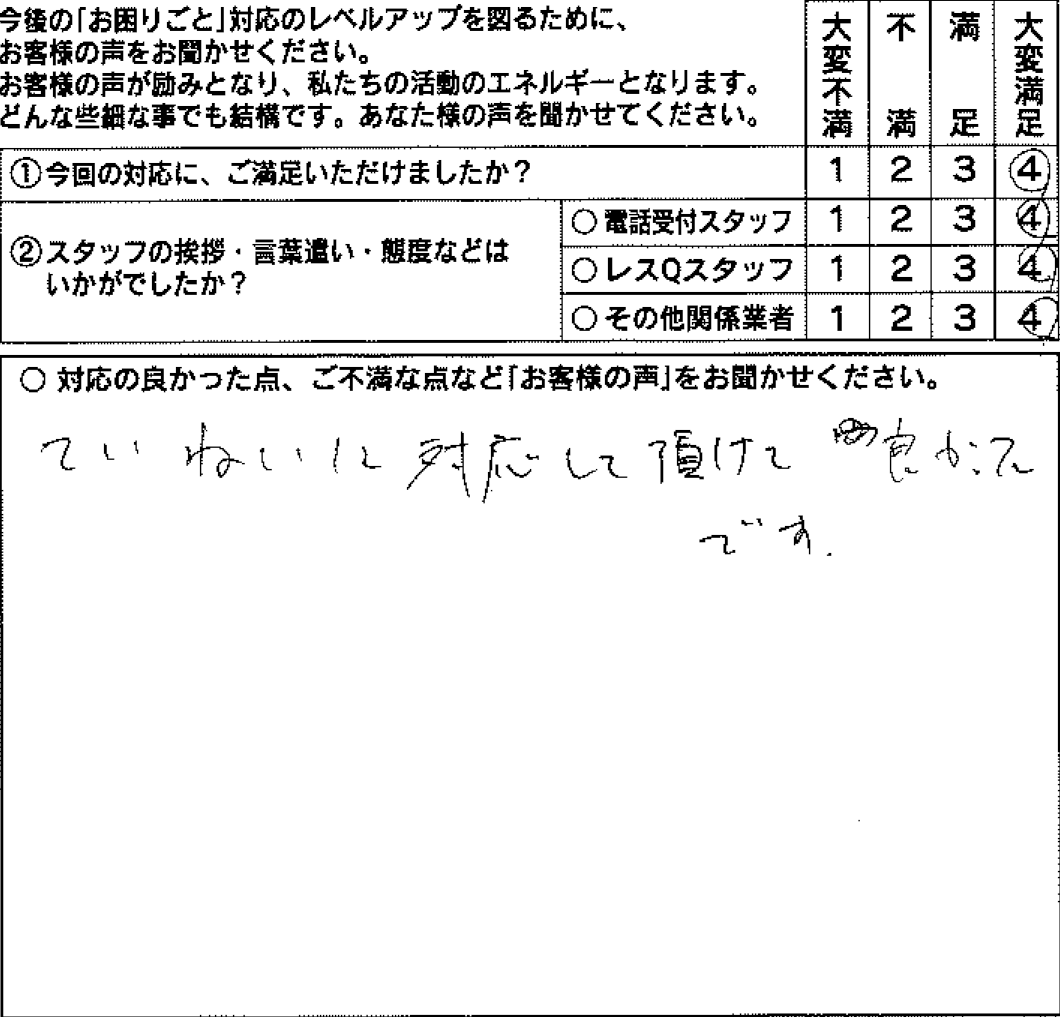 今後の「お困りごと」対応のレベルアップを図るために、
お客様の声をお聞かせください。
お客様の声が励みとなり、私たちの活動のエネルギーとなります。
どんな些細な事でも結構です。あなた様の声を聞かせてください。
大変不満 不満 満足 大変満足
①今回の対応に、ご満足いただけましたか？ 1 2 3 4
②スタッフの挨拶・言葉遣い・態度などは
いかがでしたか？
○電話受付スタッフ 1 2 3 4
○レスQスタッフ 1 2 3 4
○その他関係業者 1 2 3 4
○ 対応の良かった点、ご不満な点など「お客様の声」をお聞かせください。
ていねいに対応して頂けて 良かった
です.